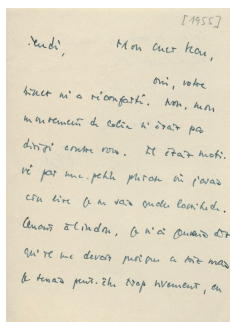 [1955]
Jeudi, Mon cher Jean,
oui, votre
billet m'a réconforté. Non, mon
mouvement de colère n'était pas
dirigé contre vous. Il était moti-
vé par une petite phrase où j'avais
cru lire je ne sais quelle
Quant à Lindon, je n'ai jamais dit
qu'il me devait puisque à
je tenais peut-être trop vivement, en